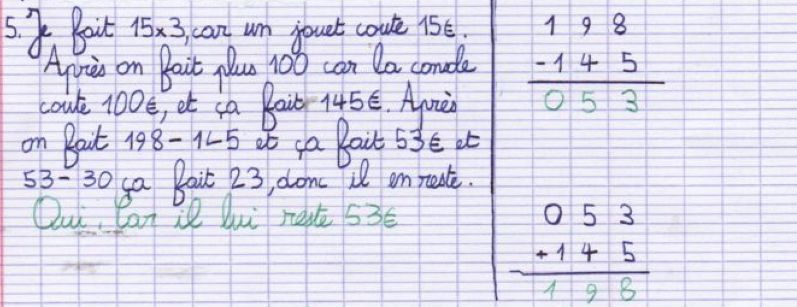 5. Je fait 15x3, car un jouet coute 15€.
Après on fait plus 100 car la console
coute 100€, et ça fait 145€. Après
on fait 198-145 et ça fait 53€ et
53-30 ça fait 23, donc il en reste.
Oui. Car il lui reste 53€
1 9 8
-1 4 5
0 5 3
0 5 3
+1 4 5
1 9 8